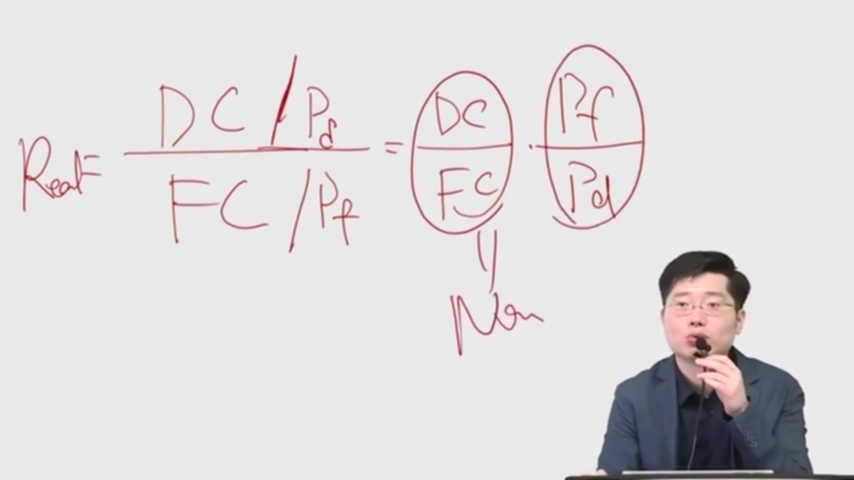 Real = DC/Pd / FC/Pf = DC/FC · Pf/Pd
Nom